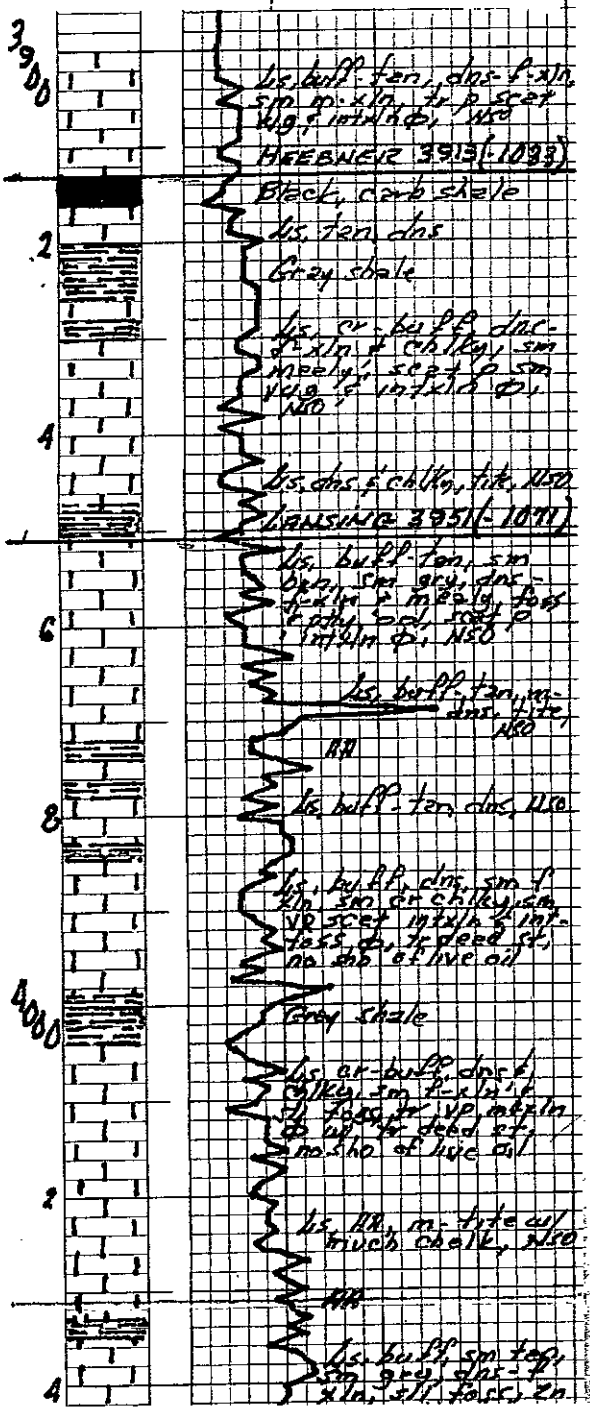 3900
Ls, buff-tan, dns-f-xln,
sm m-xln, tr p scat
vug & intxln ϕ, NSO
HEEBNER 3913 (-1033)
Black, carb shale
Ls, tan, dns
2
Gray shale
Ls, cr-buff, dns-
f-xln & chlky, sm
mealy, scat p sm
vug & intxln ϕ,
NSO
4
Ls, dns & chlky, tite, NSO
LANSING 3951 (-1071)
Ls, buff-tan, sm
brn, sm gry, dns-
f-xln & mealy, foss
& ptly ool, scat p
intxln ϕ, NSO
6
Ls, buff-tan, m-
dns, tite,
NSO
AA
8
Ls, buff-tan, dns, NSO
Ls, buff, dns, sm f
xln, sm cr chlky, sm
vp scat intxln & int-
foss ϕ, tr dead st,
no sho of live oil
4000
Gray shale
Ls, cr-buff, dns &
chlky, sm f-xln &
foss, tr vp intxln
ϕ w/ tr dead st,
no sho of live oil
2
Ls, AA, m-tite w/
much chalk, NSO
AA
Ls, buff, sm tan,
sm gry, dns-f-
4
xln, sli foss, 2n